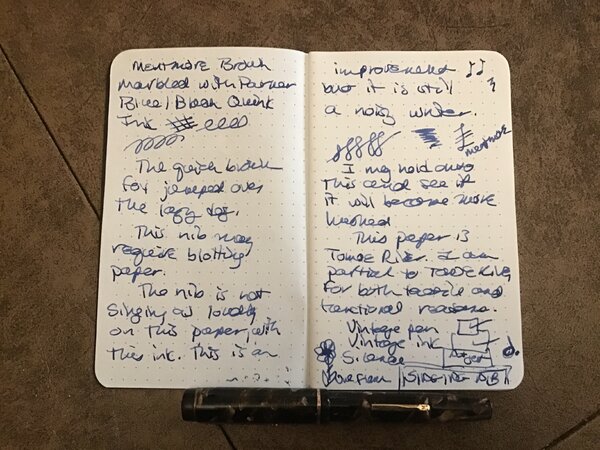 Mentmore Brown
marbled with Parker
Blue/Black Quink
Ink
The quick brown
fox jumped over
the lazy dog.
This nib may
require blotting
paper.
The nib is not
singing as loudly
on this paper, with
this ink. This is an
improvement
but it is still
a noisy writer.
mentmore
I may hold onto
this and see if
it will become more
hushed.
This paper is
Tomoe River. I am
partial to Tomoe River
for both tactile and
functional reasons.
Vintage pen
Vintage ink